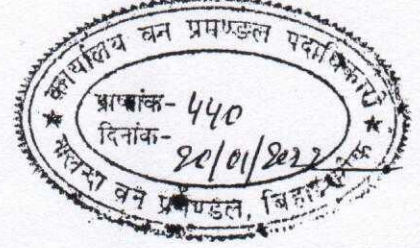 कार्यालय वन प्रमण्डल पदाधिकारी
प्राप्तांक- 440
दिनांक-
20/01/2022
नालन्दा वन प्रमण्डल, बिहारशरीफ